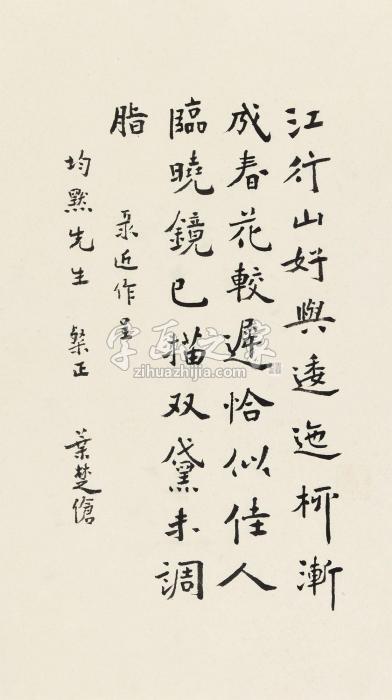 江行山好與逶迤柳漸
成春花較遲恰似佳人
臨曉鏡已描双黛未調
脂
录近作呈
均默先生 粲正 葉楚傖
字画之家
zihuazhijia.com